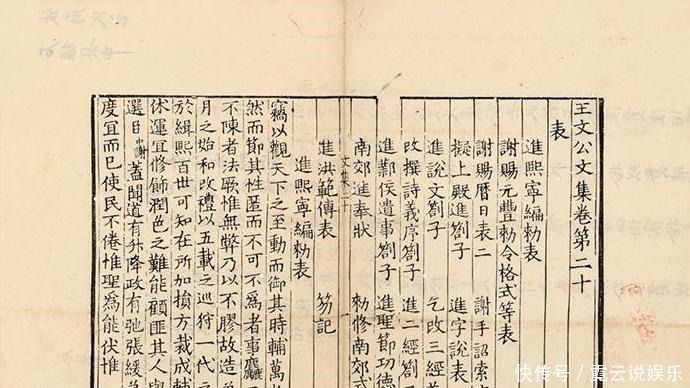 王文公文集卷第二十
表
進熙寧編勑表
謝賜元豐勑令格式等表
謝賜曆日表二 謝手詔索
擬上殿進劄子 進字說表
進說文劄子 乞改三經
改撰詩義序劄子 進二經劄
進鄴侯遺事劄子 進聖節功德
南郊進奉狀 勑修南郊式
文集卷二十 一
進洪範傳表 笏記
進熙寧編勑表
竊以觀天下之至動而御其時輔萬
然而節其性匿而不可不為者事麤
不陳者法歌惟無弊乃以不膠故造
月之始和改禮以五載之巡狩一代
於緝熙百世可知在所加損方裁成輔
休運宜修飾潤色之難能顧匪其人
選日謝蓋聞道有升降政有弛張緩
度宜而已使民不倦惟聖為能伏惟
快传号/霓云说娱乐